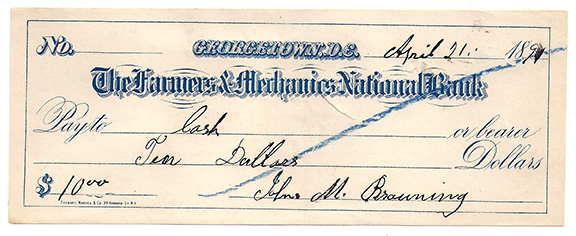 No. GEORGETOWN, D.C. April 21. 1891
The Farmers & Mechanics National Bank
Pay to Cash or bearer
Ten Dollars Dollars
$ 10.00 Jno M. Browning